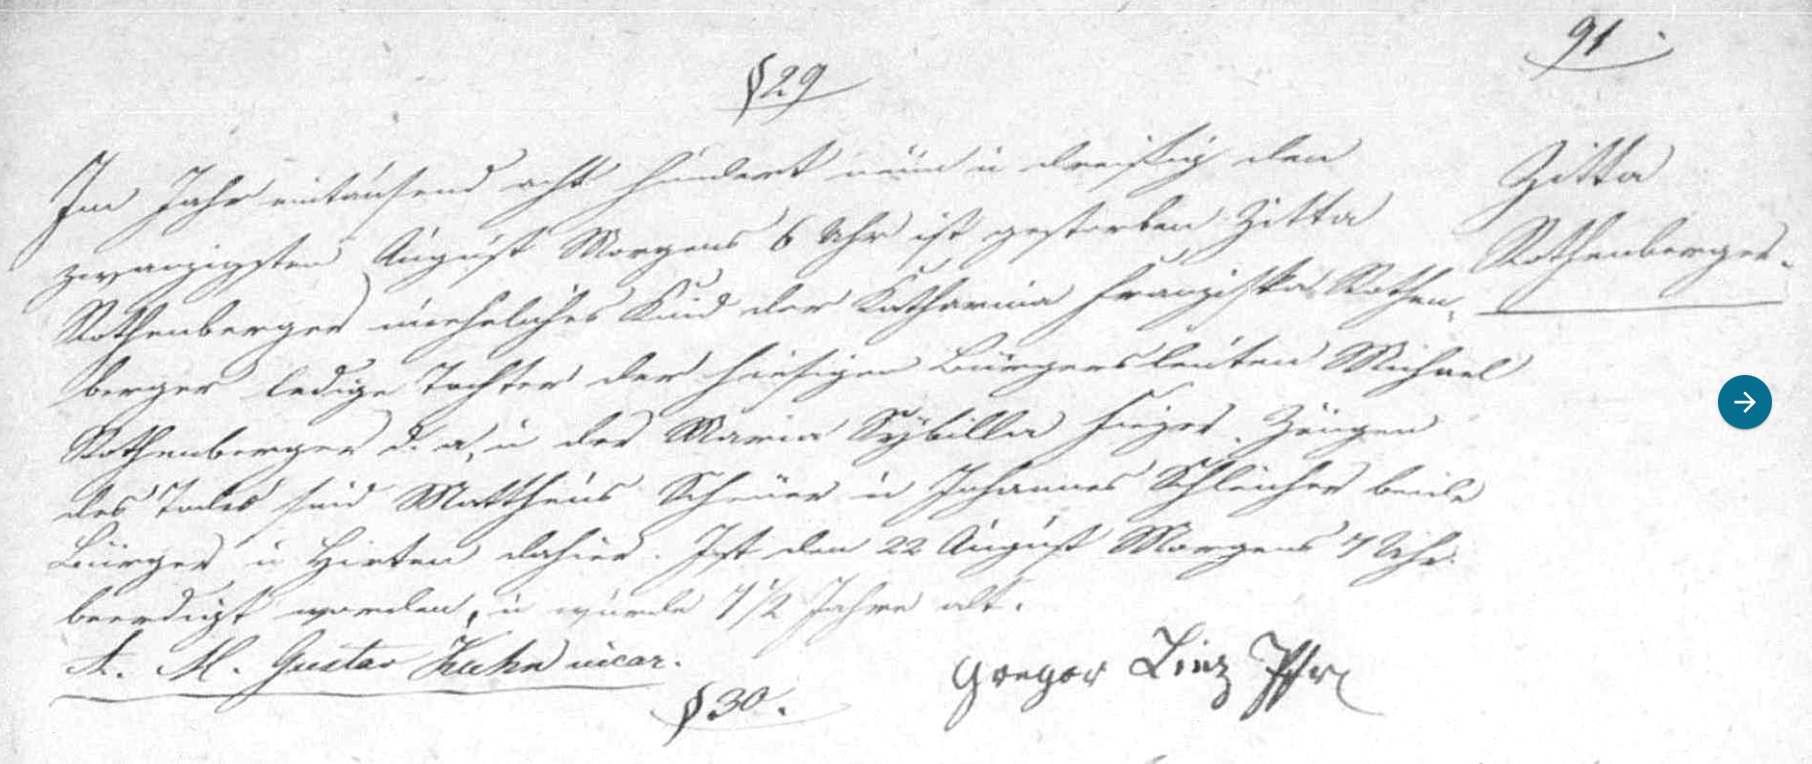 91.
§29
Im Jahr eintausend acht hundert neun u dreißig den
zwanzigsten August Morgens 6 Uhr ist gestorben Zitta
Rothenberger uneheliches Kind der Katharina Franziska Rothen-
berger ledige Tochter der hiesigen Bürgersleuten Michael
Rothenberger d. a. u der Maria Sybilla Zeugen
des Todes sind Matthäus Scheuer u Johannes Schleicher beide
Bürger u Hirten dahier. Ist den 22 August Morgens 7 Uhr
beerdigt worden, u wurde 7 1/2 Jahre alt.
Zitta
Rothenberger.
A. M. Gustav Kuhn vicar.
Gregor Linz Pfr
§30.